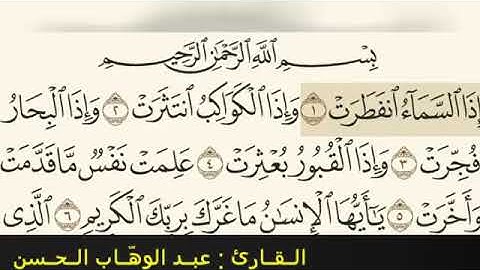 بِسْمِ اللَّهِ الرَّحْمَٰنِ الرَّحِيمِ
إِذَا السَّمَاءُ انفَطَرَتْ ١ وَإِذَا الْكَوَاكِبُ انتَثَرَتْ ٢ وَإِذَا الْبِحَارُ
فُجِّرَتْ ٣ وَإِذَا الْقُبُورُ بُعْثِرَتْ ٤ عَلِمَتْ نَفْسٌ مَّا قَدَّمَتْ
وَأَخَّرَتْ ٥ يَا أَيُّهَا الْإِنسَانُ مَا غَرَّكَ بِرَبِّكَ الْكَرِيمِ ٦ الَّذِي
القارئ : عبد الوهّاب الحسن